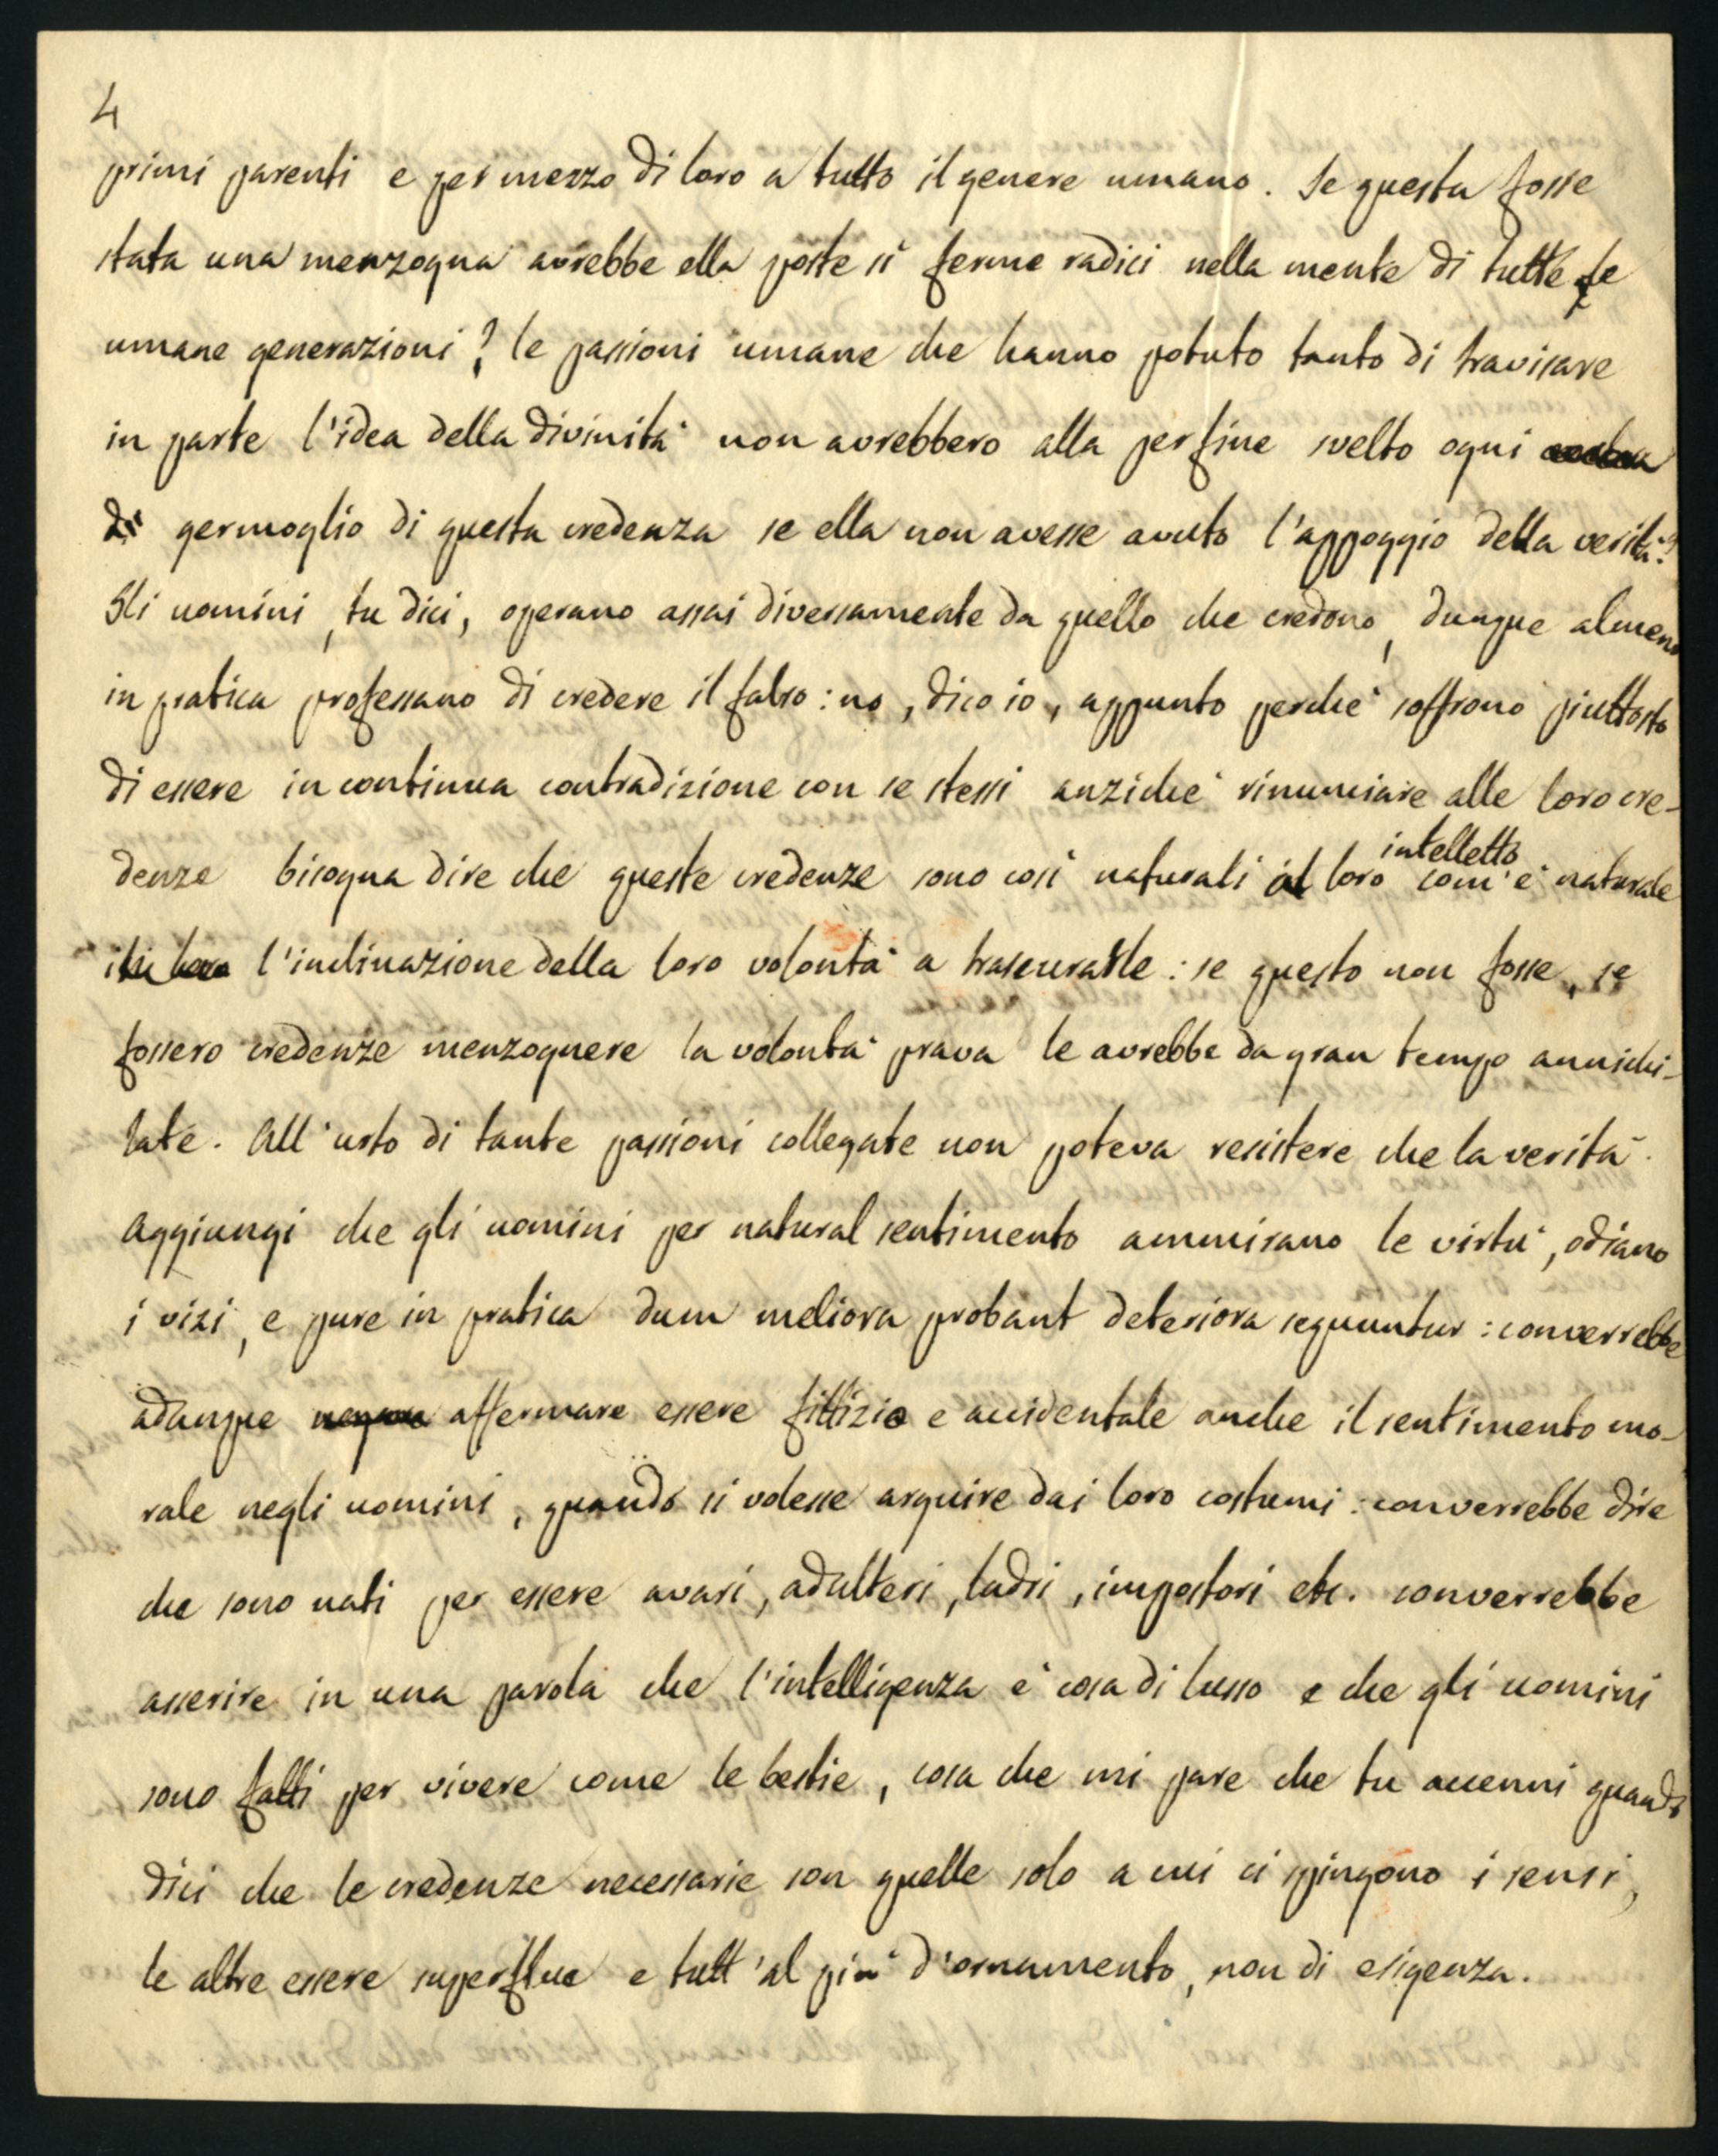 4
primi parenti e per mezzo di loro a tutto il genere umano. Se questa fosse
stata una menzogna avrebbe ella poste sì ferme radici nella mente di tutte le
umane generazioni? le passioni umane che hanno potuto tanto di travisare
in parte l'idea della divinità non avrebbero alla perfine svelto ogni
di germoglio di questa credenza se ella non avesse avuto l'appoggio della verità?
Gli uomini, tu dici, operano assai diversamente da quello che credono, dunque almeno
in pratica professano di credere il falso: no, dico io, appunto perchè soffrono piuttosto
di essere in continua contradizione con se stessi anzichè rinunciare alle loro cre-
denze bisogna dire che queste credenze sono così naturali al loro intelletto com'è naturale
l'inclinazione della loro volontà a trascurarle: se questo non fosse, se
fossero credenze menzognere la volontà prava le avrebbe da gran tempo annichi-
late. All'urto di tante passioni collegate non poteva resistere che la verità.
Aggiungi che gli uomini per natural sentimento ammirano le virtù, odiano
i vizi, e pure in pratica dum meliora probant deteriora sequuntur: converrebbe
adunque affermare essere fittizio e accidentale anche il sentimento mo-
rale negli uomini, quando si volesse arguire dai loro costumi: converrebbe dire
che sono nati per essere avari, adulteri, ladri, impostori etc. converrebbe
asserire in una parola che l'intelligenza è cosa di lusso e che gli uomini
sono fatti per vivere come le bestie, cosa che mi pare che tu accenni quando
dici che le credenze necessarie son quelle solo a cui ci spingono i sensi,
le altre essere superflue e tutt'al più d'ornamento, non di esigenza.